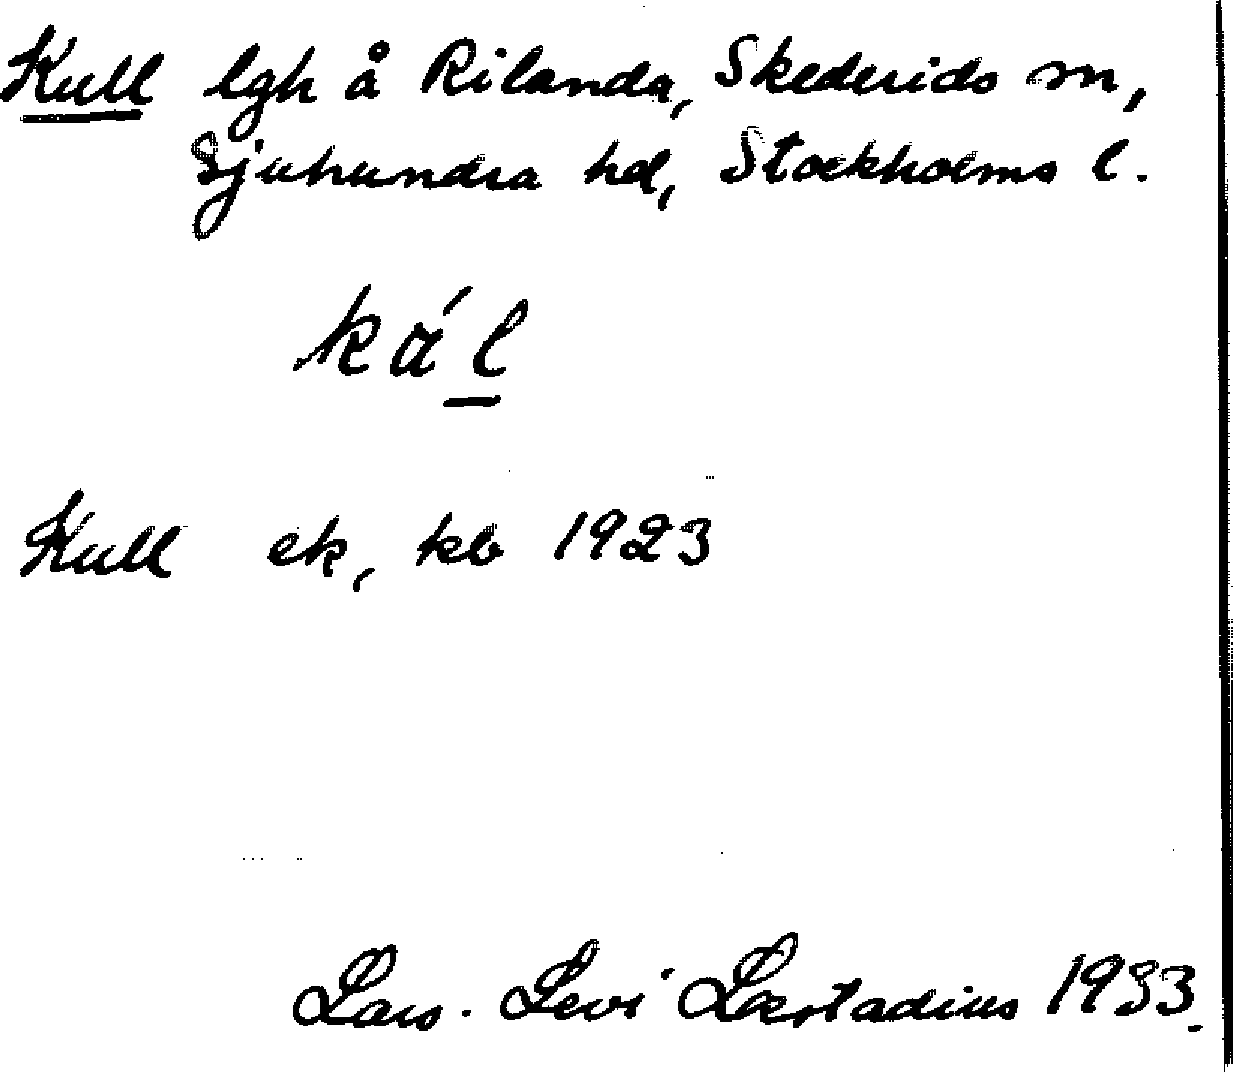 Kull lgh å Rilanda, Skederids sn,
Sjuhundra hd, Stockholms l.
ká l
Kull ek, kb 1923
Lars-Levi Læstadius 1933.